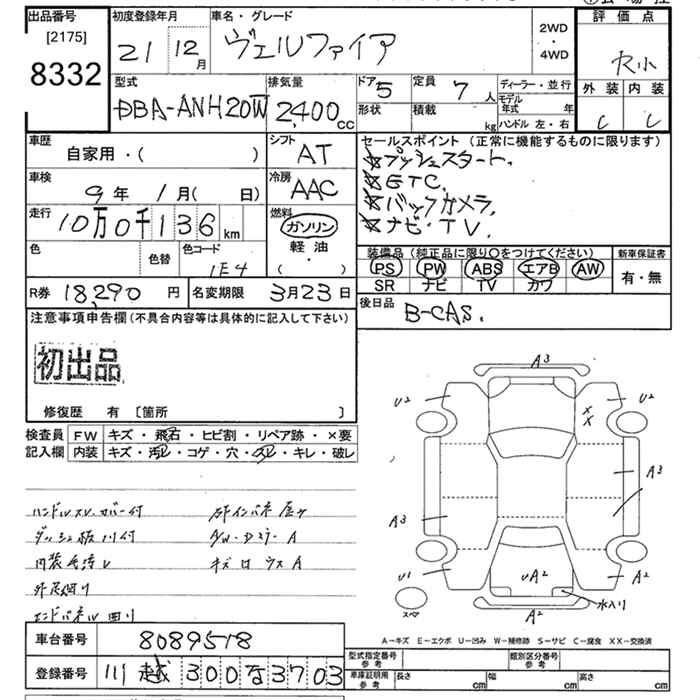 出品番号
[2175]
8332
初度登録年月
21 12月
車名・グレード
ヴェルファイア
2WD
・
4WD
評価点
外装 内装
C C
型式
DBA-ANH20W
排気量
2,400cc
ドア 5
定員 7人
形状
積載 kg
ディーラー・並行
モデル年式 年
ハンドル 左・右
車歴
自家用・( )
シフト
AT
車検
9年 1月( 日)
冷房
AAC
走行
10万0千136km
燃料
ガソリン
軽油
( ・ )
色
色替
色コード
1E4
R券 18,290円
名変期限 3月23日
セールスポイント(正常に機能するものに限ります)
☆プッシュスタート.
☆ETC.
☆バックカメラ.
☆ナビ・TV.
装備品(純正品に限り○をつけてください)
PS PW ABS エアB AW
SR ナビ TV カワ
新車保証書
有・無
後日品
B-CAS.
注意事項申告欄(不具合内容等は具体的に記入して下さい)
初出品
修復歴 有 〔箇所 〕
検査員記入欄
FW キズ・飛石・ヒビ割・リペア跡・×要
内装 キズ・汚レ・コゲ・穴・スレ・キレ・破レ
ハンドルスレ カバー付
ダッシュ板 川付
エンドパネル 凹り
A3
U2
U2
XX
A3
A3
U1
A2
UA2
A2
水入り
スペア
A−キズ E−エクボ U−凹み W−補修跡 S−サビ C−腐食 XX−交換済
車台番号 8089518
登録番号 川越 300 な 3703
型式指定番号 参考
類別区分番号 参考
車庫証明用 参考
長さ cm
幅 cm
高さ cm